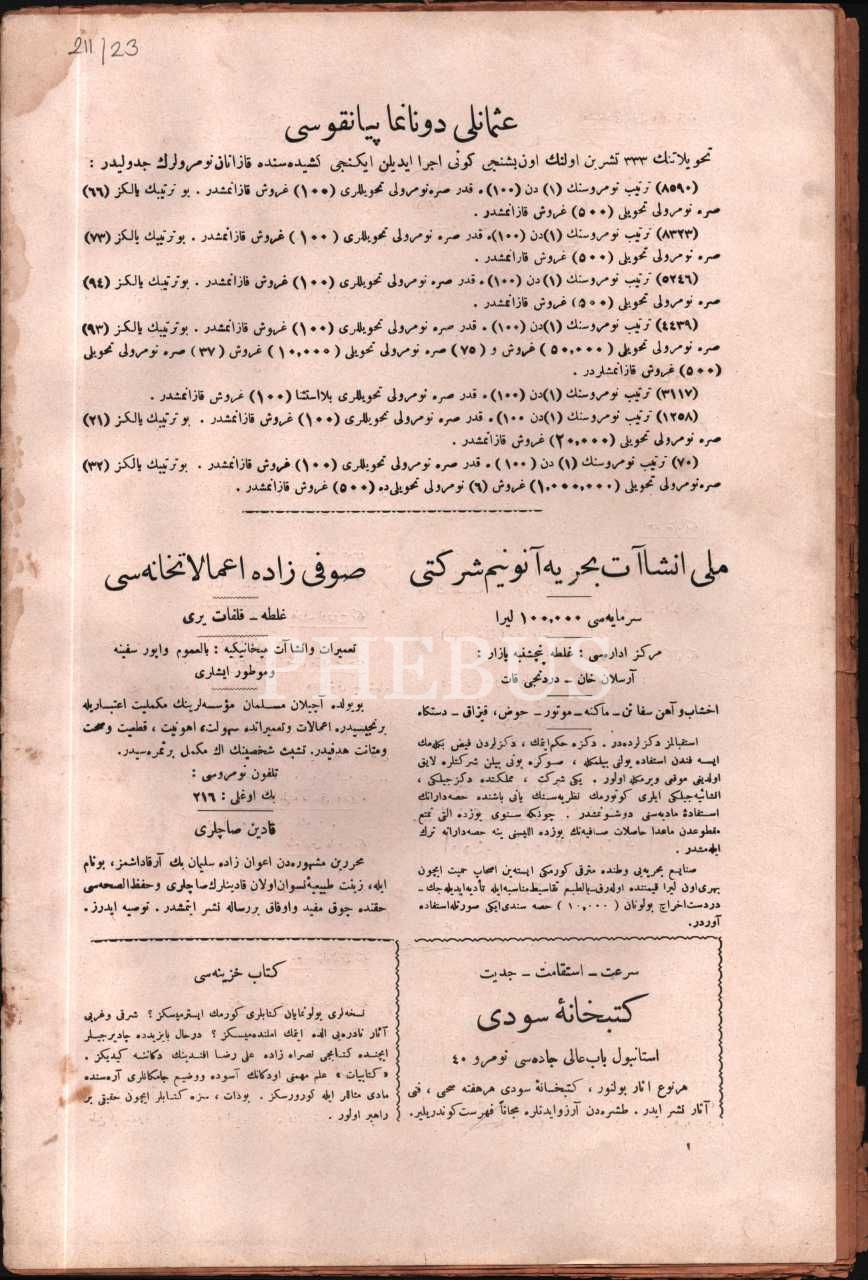 211/23
عثمانلی دونانما پیانقوسی
تحویلاتنك ٣٣٣ تشرین اولنك اون بشنجی کونی اجرا ایدیلن ایکنجی کشیده سنده قازانان نومرولرك جدولیدر :
(٨٥٩٠) ترتیب نومروسنك (١) دن (١٠٠)ـه قدر صره نومرولی تحویللری (١٠٠) غروش قازانمشدر . بو ترتیبك یالکز (٦٦)
صره نومرولی تحویلی (٥٠٠) غروش قازانمشدر .
(٨٣٢٣) ترتیب نومروسنك (١)دن (١٠٠)ـه قدر صره نومرولی تحویللری (١٠٠) غروش قازانمشدر . بوترتیبك یالکز (٧٣)
صره نومرولی تحویلی (٥٠٠) غروش قازانمشدر .
(٥٢٤٦) ترتیب نومروسنك (١) دن (١٠٠)ـه قدر صره نومرولی تحویللری (١٠٠) غروش قازانمشدر . بوترتیبك یالکز (٩٤)
صره نومرولی تحویلی (٥٠٠) غروش قازانمشدر .
(٤٤٣٩) ترتیب نومروسنك (١)دن (١٠٠)ـه قدر صره نومرولی تحویللری (١٠٠) غروش قازانمشدر . بوترتیبك یالکز (٩٣)
صره نومرولی تحویلی (٥٠,٠٠٠) غروش و (٧٥) صره نومرولی تحویلی (١٠,٠٠٠) غروش (٣٧) صره نومرولی تحویلی
(٥٠٠) غروش قازانمشلردر .
(٣١١٧) ترتیب نومروسنك (١)دن (١٠٠)ـه قدر صره نومرولی تحویللری بلااستثنا (١٠٠) غروش قازانمشدر .
(١٢٥٨) ترتیب نومروسنك (١)دن (١٠٠)ـه قدر صره نومرولی تحویللری (١٠٠) غروش قازانمشدر . بوترتیبك یالکز (٢١)
صره نومرولی تحویلی (٢٠,٠٠٠) غروش قازانمشدر .
(٧٠) ترتیب نومروسنك (١) دن (١٠٠)ـه قدر صره نومرولی تحویللری (١٠٠) غروش قازانمشدر . بوترتیبك یالکز (٣٢)
صره نومرولی تحویلی (١,٠٠٠,٠٠٠) غروش (٦) نومرولی تحویلی ده (٥٠٠) غروش قازانمشدر .
ملی انشاآت بحریه آنونیم شرکتی
سرمایه سی ١٠٠,٠٠٠ لیرا
مرکز اداره سی : غلطه پنجشنبه بازار :
آرسلان خان ـ دردنجی قات
اخشاب و آهن سفائن ـ ماکنه ـ موتور ـ حوض، قیزاق ـ دستکاه
استقبالمز دکزلرده در . دکزه حکم ایتمك ، دکزلردن فیض بکله مك
ایسه فندن استفاده یولنی بیلمکله ، صوکره بونی بیلن شرکتلره لایق
اولدینی موقعی ویرمکله اولور . یکی شرکت ، مملکتده دکزجیلکی ،
انشائیه جیلکی ایلری کوتورمك نظریه سنك یانی باشنده حصه دارانك
استفادۀ مادیه سنی دوشونمشدر . چونکه سنوی یوزده التی تمتع
مقطوعدن ماعدا حاصلات صافیه نك یوزده اللیسنی ینه حصه دارانه ترك
ایله مشدر .
صنایع بحریه یی وطنده مترقی کورمکی ایسته ین اصحاب حمیت ایچون
بهری اون لیرا قیمتنده اوله رق بالطبع تقاسیط مناسبه ایله تأدیه ایدیله جك ـ
دردست اخراج بولونان (١٠,٠٠٠) حصه سندی ایکی صورتله استفاده
آوردر.
صوفی زاده اعمالاتخانه سی
غلطه ـ قلفات یری
تعمیرات وانشاآت میخانیکیه : بالعموم واپور سفینه
وموطور ایشلری
بویولده آچیلان مسلمان مؤسسه لرینك مکملیت اعتباریله
برنجیسیدر. اعمالات وتعمیراتده سهولت، اهونیت ، قطعیت وصحت
ومتانت هدفیدر. تشبث شخصینك اك مکمل برثمره سیدر.
تلفون نومروسی :
بك اوغلی : ٢١٦
قادین صاچلری
محررین مشهوره دن اعوان زاده سلیمان بك آرقاداشمز، بونام
ایله، زینت طبیعیۀ نسوان اولان قادینلرك صاچلری وحفظ الصحه سی
حقنده چوق مفید واوفاق بررساله نشر ایتمشدر . توصیه ایدرز .
سرعت ـ استقامت ـ جدیت
کتبخانۀ سودی
استانبول باب عالی جاده سی نومرو ٤٠
هرنوع آثار بولنور ، کتبخانۀ سودی هرهفته صحی ، فنی
آثار نشر ایدر . طشره دن آرزوایدنلره مجاناً فهرست کوندریلیر.
کتاب خزینه سی
نسخه لری بولونمایان کتابلری کورمك ایسترمیسکز ؟ شرقی وغربی
آثار نادره یی الده ایتمك املنده میسکز ؟ درحال بایزیدده چادیرجیلر
ایچنده کتابجی نصرالله زاده علی رضا افندینك دکاننه کیدیکز .
«کتابیات» علم مهمنی اودکانك آسوده ووضیع جامکانلری آره سنده
مادی مثاللر ایله کورورسکز . بوذات ، سزه کتابلر ایچون حقیقی بر
راهبر اولور .
١
PHEBUS